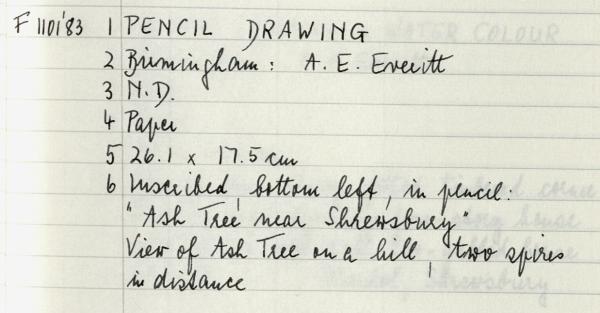 F 1101'83 1 PENCIL DRAWING
2 Birmingham: A. E. Everitt
3 N.D.
4 Paper
5 26.1 x 17.5 cm
6 Inscribed, bottom left, in pencil:
"Ash Tree near Shrewsbury"
View of Ash Tree on a hill, two spires
in distance